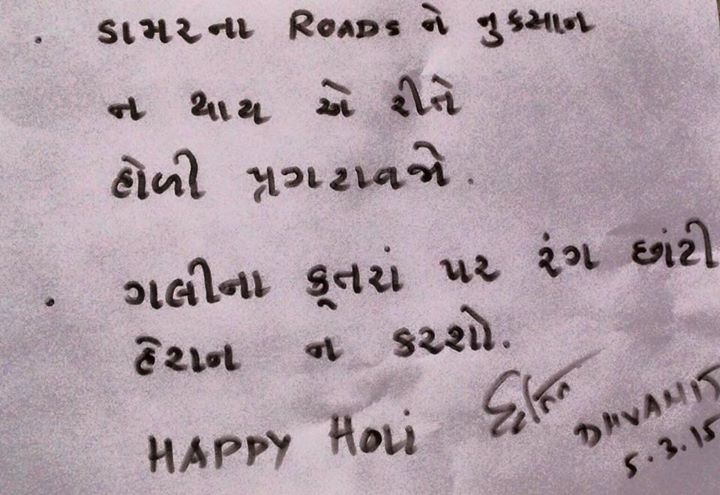 . ડામરના ROADS ને નુકસાન
ન થાય એ રીતે
હોળી પ્રગટાવજો.
. ગલીના કૂતરાં પર રંગ છાંટી
હેરાન ન કરશો.
HAPPY HOLI
DHVANIT
5.3.15